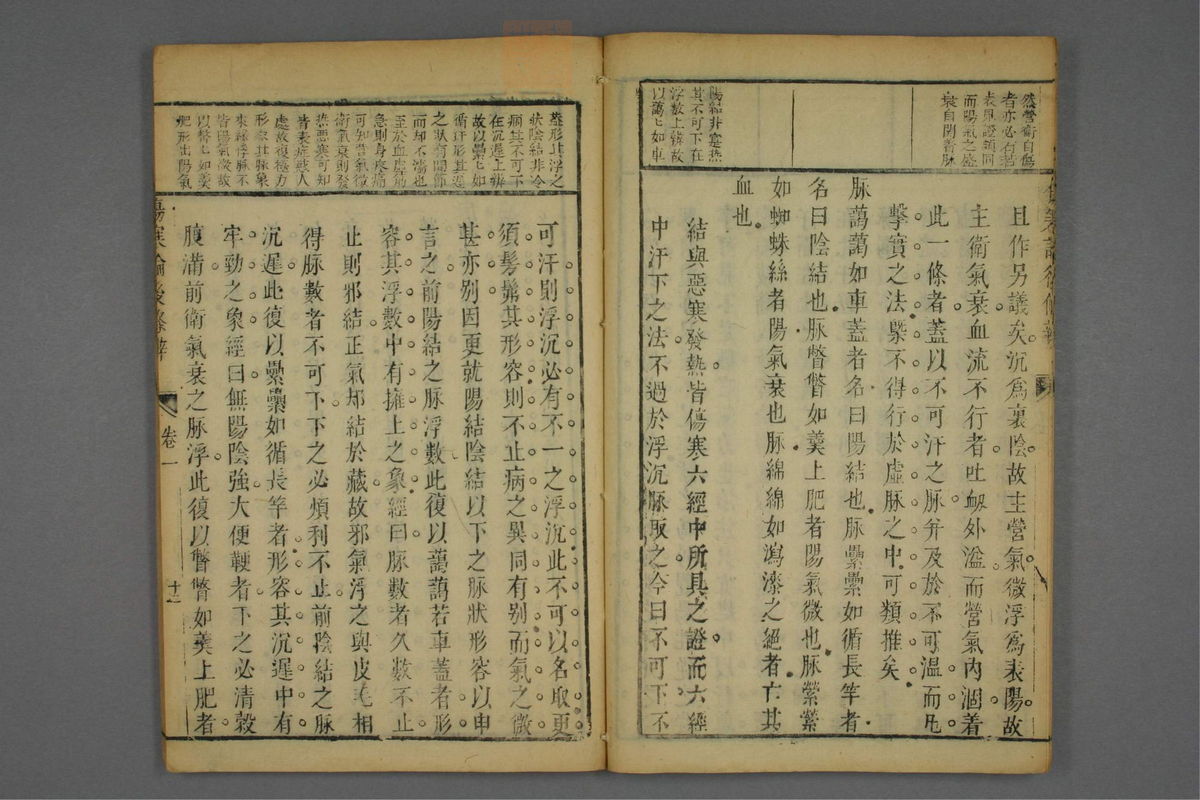 然營衛自傷
者亦必有若
表與證類同
而陽氣之盛
衰自關着脉
陽結非寔熱
其不可下在
浮數上辨故
以藹〻如車
且作另議矣沉爲裏陰故主營氣微浮爲表陽故
主衛氣衰血流不行者吐衂外溢而營氣內涸着
此一條者蓋以不可汗之脉并及於不可溫而凡
擊實之法槩不得行於虛脉之中可類推矣
脉藹藹如車蓋者名曰陽結也脉纍纍如循長竿者
名曰陰結也脉瞥瞥如羹上肥者陽氣微也脉縈縈
如蜘蛛絲者陽氣衰也脉綿綿如瀉漆之絕者亡其
血也
結與惡寒發熱皆傷寒六經中所具之證而六經
中汗下之法不過於浮沉脉取之今曰不可下不
蓋形其浮之
狀陰結非冷
病其不可下
在沉遲上辨
故以纍〻如
循竿形其遲
之狀有間節
而却不濇也
至於血虛筋
急則身疼痛
可知營氣微
衛氣衰則發
熱惡寒可知
皆表症惑人
處故復極力
形容其脉象
來緣浮脉不
皆陽氣盛故
以瞥〻如羹
肥形出陽氣
可汗則浮沉必有不一之浮沉此不可以名取更
須髣髴其形容則不止病之異同有别而氣之微
甚亦别因更就陽結陰結以下之脉狀形容以申
言之前陽結之脉浮數此復以藹藹若車蓋者形
容其浮數中有擁上之象經曰脉數者久數不止
止則邪結正氣却結於藏故邪氣浮之與皮毛相
得脉數者不可下下之必煩利不止前陰結之脉
沉遲此復以纍纍如循長竿者形容其沉遲中有
牢勁之象經曰無陽陰強大便鞕者下之必清穀
腹滿前衛氣衰之脉浮此復以瞥瞥如羹上肥者
傷寒論後條辨
卷一
十二